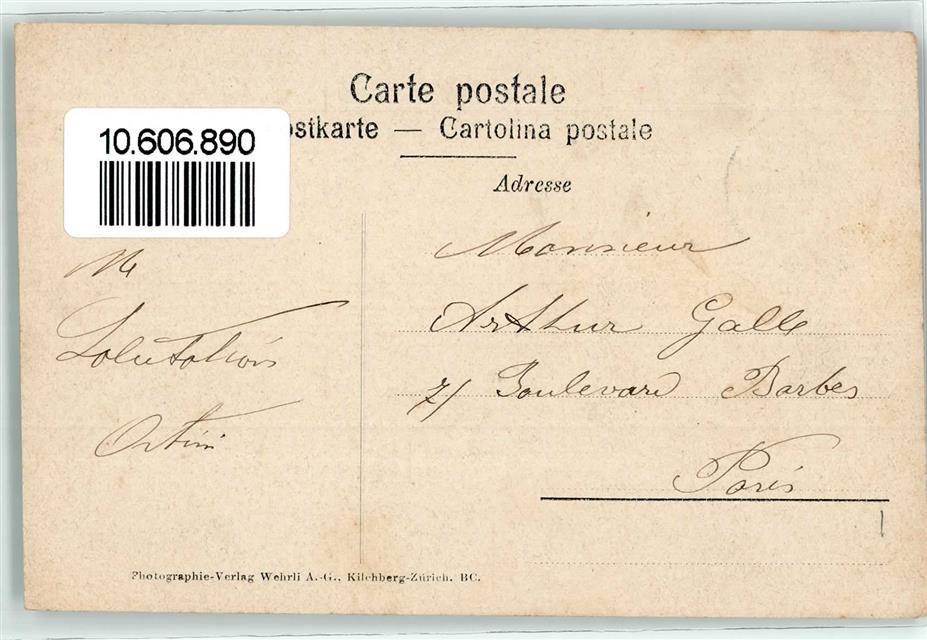 Carte postale
ostkarte — Cartolina postale
10.606.890
Adresse
Monsieur
Arthur Galle
7/ Boulevard Barbes
Paris
Salutations
Photographie-Verlag Wehrli A.-G., Kilchberg-Zürich. BC.